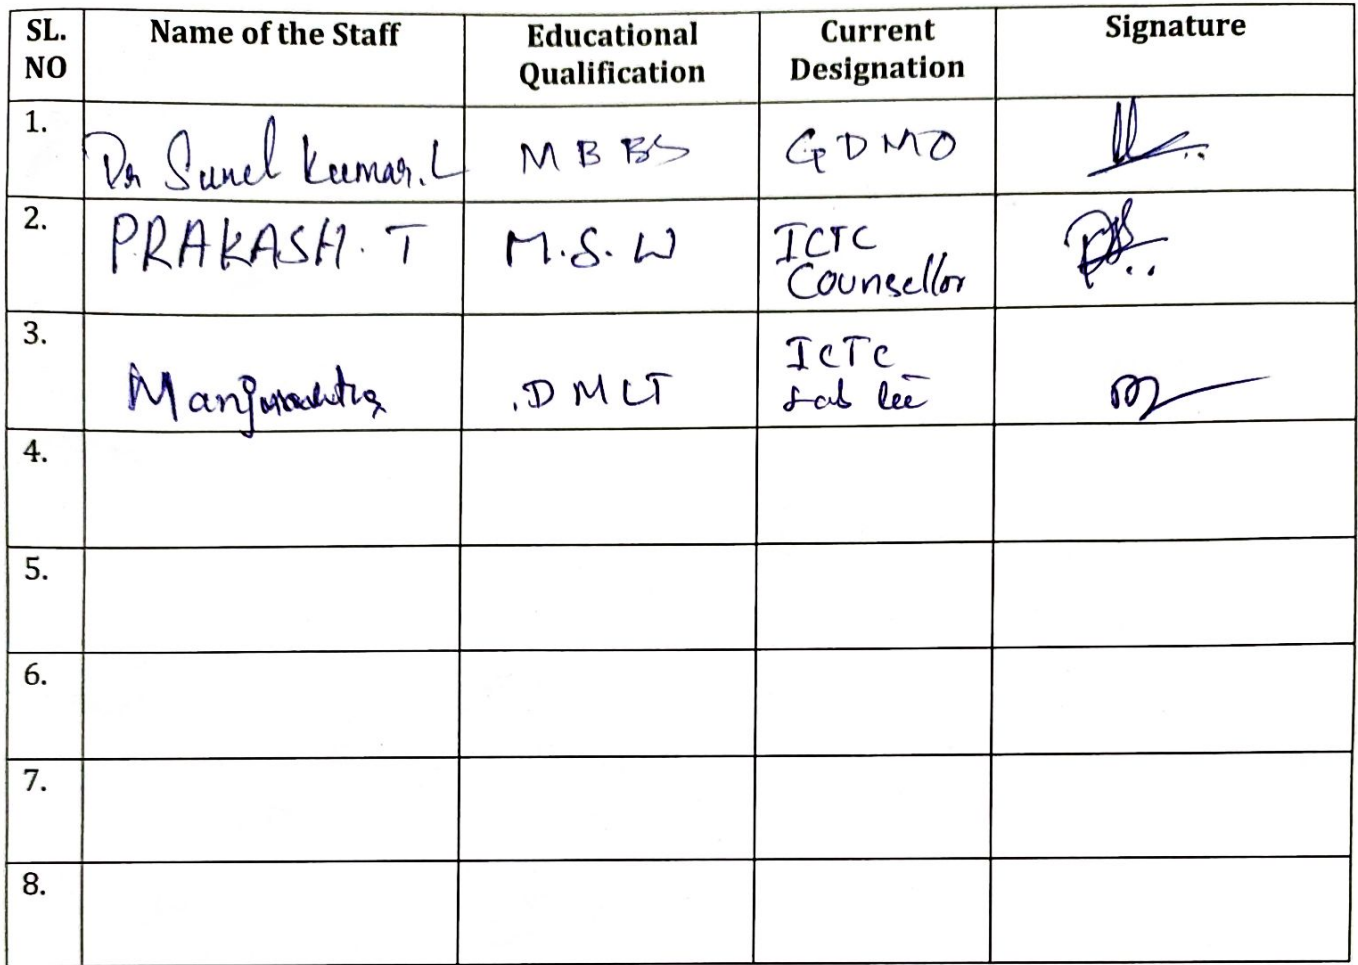 SL. NO Name of the Staff Educational Qualification Current Designation Signature
1. Dr Sunil Kumar. L M B BS G D M O
2. PRAKASH. T M.S. W ICTC Counsellor
3. DMLT ICTC Lab
4.
5.
6.
7.
8.